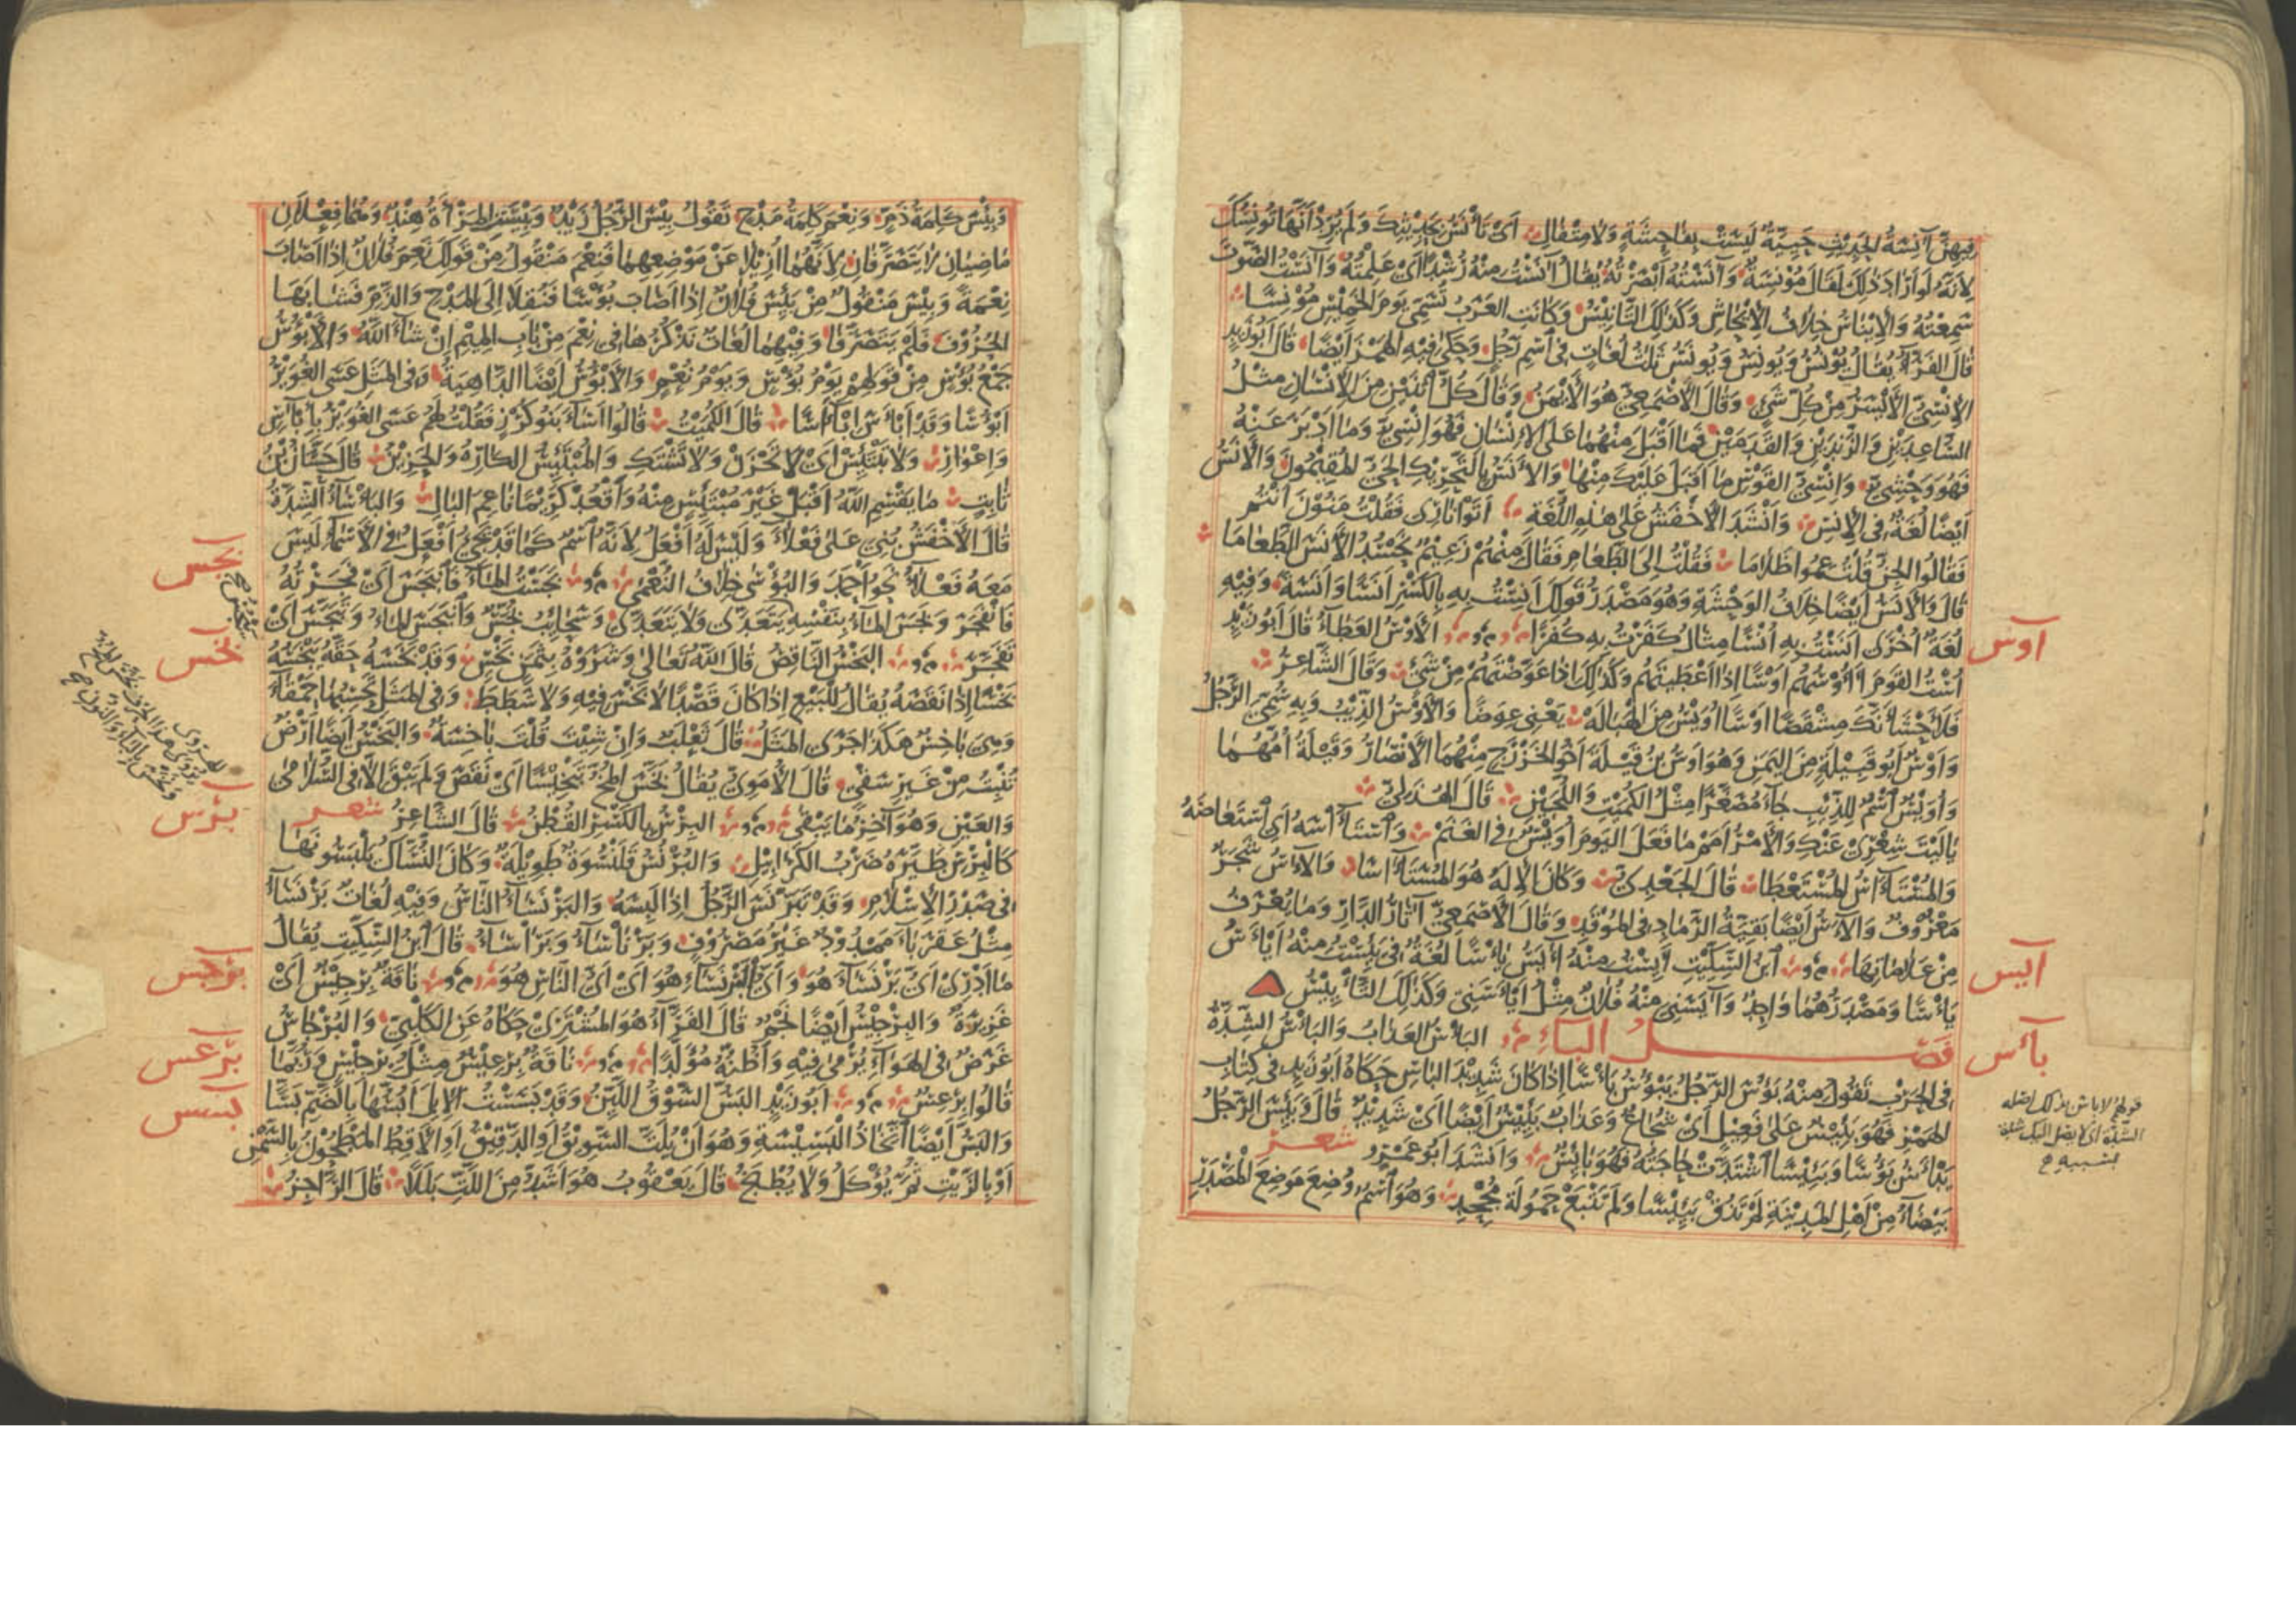 فيهن آنسة الحديث حيية ليست بفاحشة ولا متفال أي تأنس حديثك ولم يرد أنها تونسك
لأنه لو أراد ذلك لقال مؤنسة وآنسته أبصرته يقال آنست منه رشدا أي علمته وآنست الصوت
سمعته والإيناس خلاف الإيحاش وكذلك التأنيس وكانت العرب تسمي يوم الخميس مونسا
قال الفراء يقال يونس ويونس ويونس ثلث لغات في اسم رجل وحكي فيه الهمز أيضا قال أبو زيد
الإنسي الأيسر من كل شيء وقال الأصمعي هو الأيمن وقال كل اثنين من الإنسان مثل
الساعدين والزندين والقدمين فما أقبل منهما على الإنسان فهو إنسي وما أدبر عنه
فهو وحشي وإنسي القوس ما أقبل عليك منها والأنس بالتحريك الحي المقيمون والأنس
أيضا لغة في الإنس وأنشد الأخفش على هذه اللغة أتوا ناري فقلت منون أنتم
فقالوا الجن قلت عموا ظلاما فقلت إلى الطعام فقال منهم زعيم نحسد الأنس الطعاما
قال والأنس أيضا خلاف الوحشة وهو مصدر قولك أنست به بالكسر أنسا وأنسة وفيه
لغة أخرى أنست به أنسا مثال كفرت به كفرا الأوس العطاء قال أبو زيد
أوس
أست القوم أؤوسهم أوسا إذا أعطيتهم وكذلك إذا عوضتهم من شيء وقال الشاعر
فلأحشأنك مشقصا أوسا أويس من الهباله يعني عوضا والأوس الذيب وبه سمي الرجل
وأوس أبو قبيلة من اليمن وهو أوس بن قيلة أخو الخزرج منهما الأنصار وقيلة أمهما
وأويس اسم للذيب جاء مصغرا مثل الكميت واللجين قال الهذلي
يا ليت شعري عنك والأمر أمم ما فعل اليوم أويس في الغنم واستآسه أي استعاضه
والمستآس المستعطا قال الجعدي وكان الإله هو المستآسا والآس شجر
معروف والآس أيضا بقية الرماد في الموقد وقال الأصمعي آثار الدار وما يعرف
من علاماتها ابن السكيت أيست منه آيس يأسا لغة في يئست منه أيأس
آيس
يأسا ومصدرهما واحد وآيسني منه فلان مثل أيأسني وكذلك التأييس
فصل الباء البأس العذاب والبأس الشدة
بأس
في الحرب تقول منه بؤس الرجل يبؤس بأسا إذا كان شديد البأس حكاه أبو زيد في كتاب
الهمز فهو بئيس على فعيل أي شجاع وعذاب بئيس أيضا أي شديد قال وبئس الرجل
يبأس بؤسا وبئيسا اشتدت حاجته فهو بائس وأنشد أبو عمرو شعر
بيضاء من أهل المدينة لم تذق بئيسا ولم تتبع حمولة مجحد وهو اسم وضع موضع المصدر
وبئس كلمة ذم ونعم كلمة مدح تقول بئس الرجل زيد وبئست المرأة هند وهما فعلان
ماضيان لا يتصرفان لأنهما أزيلا عن موضعهما فنعم منقول من قولك نعم فلان إذا أصاب
نعمة وبئس منقول من بئس فلان إذا أصاب بؤسا فنقلا إلى المدح والذم فشابها
الحروف فلم يتصرفا وفيهما لغات نذكرها في نعم من باب الميم إن شاء الله والأبؤس
جمع بؤس من قولهم يوم بؤس ويوم نعم والأبؤس أيضا الداهية وفي المثل عسى الغوير
أبؤسا وقد أبأس إبآسا قال الكميت قالوا أساء بنو كرز فقلت لهم عسى الغوير بإبآس
وإغوار ولا تبتئس أي لا تحزن ولا تشتك والمبتئس الكاره والحزين قال حسان بن
ثابت ما يقسم الله أقبل غير مبتئس منه وأقعد كريما ناعم البال والبأساء الشدة
قال الأخفش بني على فعلاء وليس له أفعل لأنه اسم كما قد يجيء أفعل في الأسماء ليس
معه فعلاء نحو أحمد والبؤسى خلاف النعمى بجست الماء فانبجس أي فجرته
بجس
فانفجر وبجس الماء بنفسه يتعدى ولا يتعدى وسحايب بجس وانبجس الماء وتبجس أي
تفجر البخس الناقص قال الله تعالى وشروه بثمن بخس وقد بخسه حقه يبخسه
بخس
بخسا إذا نقصه يقال للبيع إذا كان قصدا لا بخس فيه ولا شطط وفي المثل تحسبها حمقاء
وهي باخس هكذا جرى المثل قال ثعلب وإن شيت قلت باخسة والبخس أيضا أرض
تنبت من غير سقي قال الأموي يقال بخس المخ تبخيسا أي نقص ولم يبق إلا في السلامى
والعين وهو آخر ما يبقى البرس بالكسر القطن قال الشاعر شعر
برس
كالبرس طيره ضرب الكرابيل والبرنس قلنسوة طويلة وكان النساك يلبسونها
في صدر الإسلام وقد تبرنس الرجل إذا لبسه والبرنساء الناس وفيه لغات برنساء
مثل عقرباء ممدود غير مصروف وبرناساء وبراساء قال ابن السكيت يقال
ما أدري أي برنساء هو وأي البرنساء هو أي أي الناس هو ناقة برجيس أي
برجس
غزيرة والبرجيس أيضا نجم قال الفراء هو المشتري حكاه عن الكلبي والبرجاس
غرض في الهواء يرمى فيه وأظنه مولدا ناقة برعيس مثل برجيس وربما
برعس
قالوا برعس أبو زيد البس السوق اللين وقد بسست الإبل أبسها بالضم بسا
بسس
والبس أيضا اتخاذ البسيسة وهو أن يلت السويق أو الدقيق أو الأقط المطحون بالسمن
أو بالزيت ثم يؤكل ولا يطبخ قال يعقوب هو أشد من اللت بللا قال الراجز